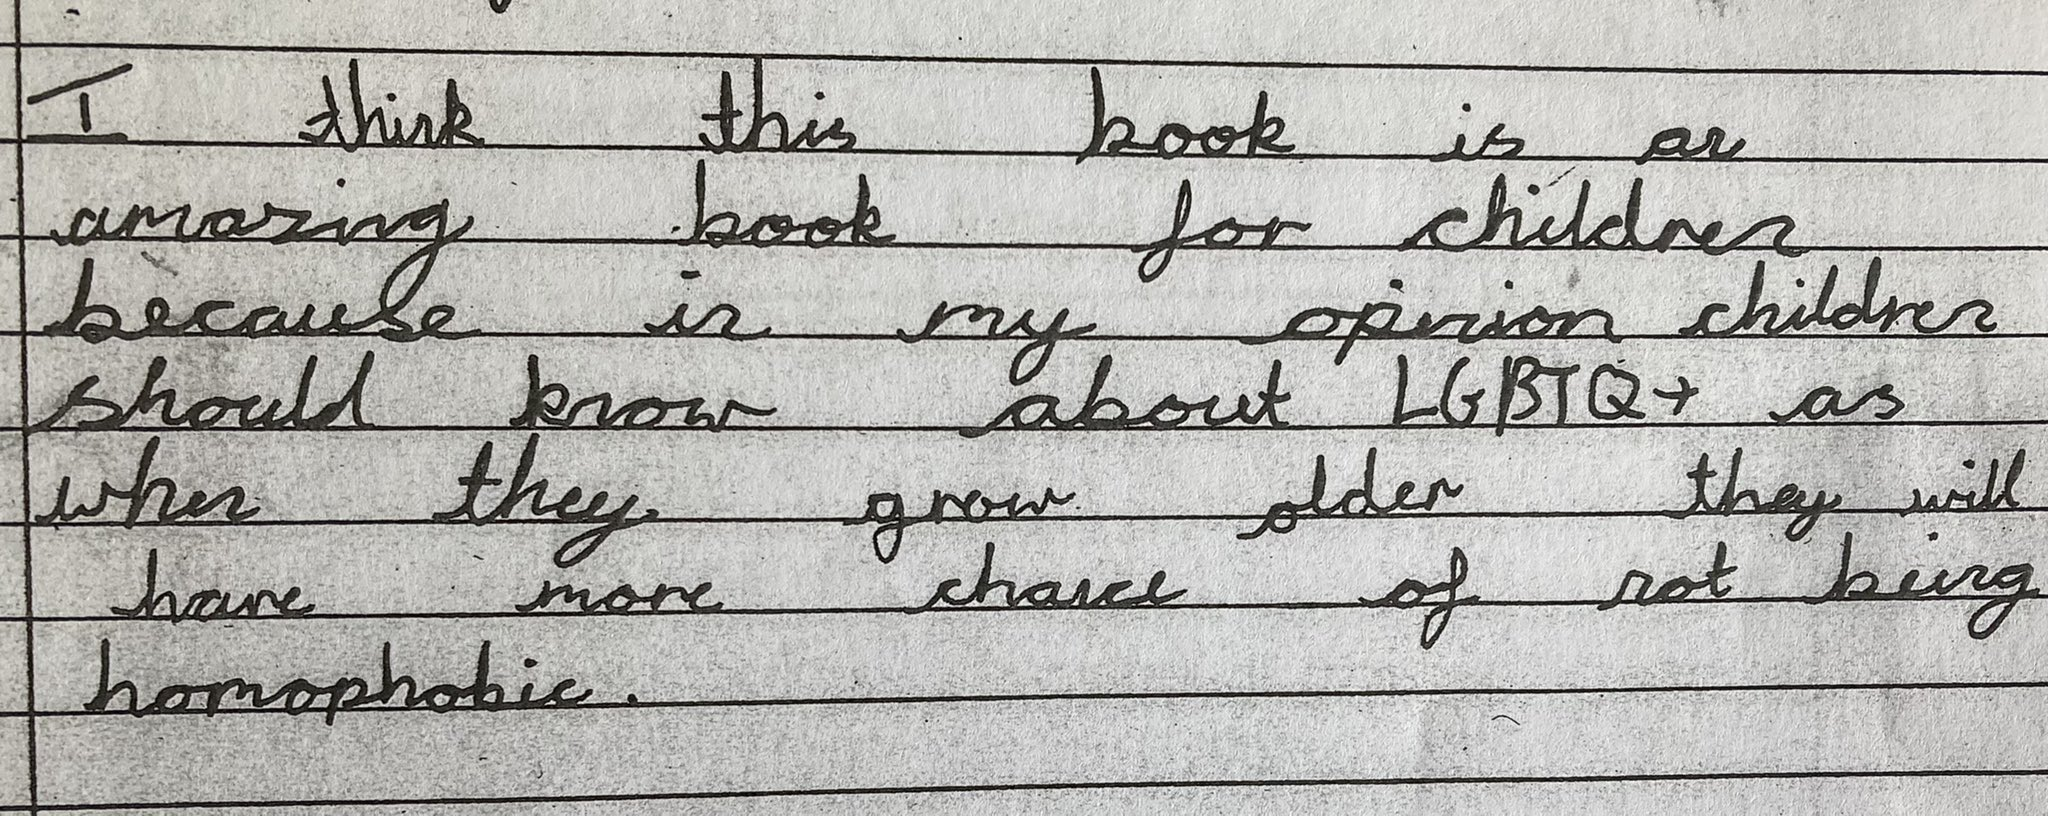 I think this book is an
amazing book for children
because in my opinion children
should know about LGBTQ+ as
when they grow older they will
have more chance of not being
homophobic.